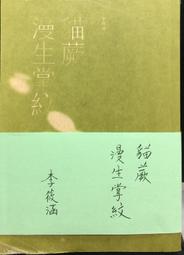 貓蕨
漫生掌紋
貓蕨
漫生掌紋
李筱涵